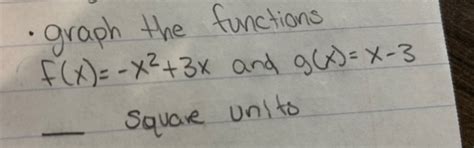 • graph the functions
f(x) = -x² + 3x and g(x) = x - 3
___ square units